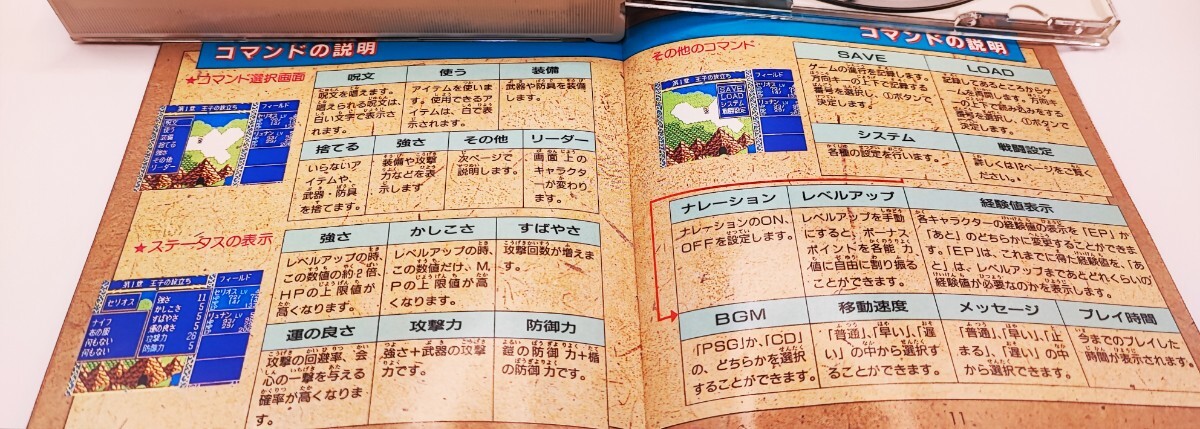 コマンドの説明
★コマンド選択画面
第1章 王子の旅立ち
フィールド
呪文
使う
装備
捨てる
強さ
その他
リーダー
呪文
呪文を唱えます。
唱えられる呪文は、
白い文字で表示さ
れます。
使う
アイテムを使いま
す。使用できるア
イテムは、白で表
示されます。
装備
武器や防具を装備
します。
捨てる
いらないア
イテムや、
武器・防具
を捨てます。
強さ
装備や攻撃
力などを表
示します
その他
次ページで
説明します。
リーダー
画面上の
キャラクタ
ーが変わり
ます。
★ステータスの表示
第1章 王子の旅立ち
フィールド
セリオス
ナイフ
布の服
何もない
何もない
強さ 11
かしこさ 5
すばやさ 5
運の良さ 5
攻撃力
防御力
強さ
レベルアップの時、
この数値の約2倍、
HPの上限値が
高くなります。
かしこさ
レベルアップの時、
この数値だけ、M
Pの上限値が高
くなります。
すばやさ
攻撃回数が増えま
す。
運の良さ
攻撃の回避率、会
心の一撃を与える
確率が高くなりま
す。
攻撃力
強さ+武器の攻撃
力です。
防御力
鎧の防御力+楯
の防御力です。
コマンドの説明
その他のコマンド
第1章 王子の旅立ち
フィールド
SAVE
LOAD
システム
戦闘設定
SAVE
ゲームの進行を記録します。
方向キーの上下で記録する
番号を選択し、①ボタンで
決定します。
LOAD
記録してあるところからゲー
ムを再開します。方向キ
ーの上下で読み込みをする
番号を選択し、①ボタンで
決定します。
システム
各種の設定を行います。
戦闘設定
詳しくは12ページをご覧く
ださい。
ナレーション
ナレーションのON、
OFFを設定します。
レベルアップ
レベルアップを手動
にすると、ボーナス
ポイントを各能力
値に自由に割り振る
ことができます。
経験値表示
各キャラクターの経験値の表示を「EP」か
「あと」のどちらかに変更することができま
す。「EP」は、これまでに得た経験値を、「あ
と」は、レベルアップまであとどれくらいの
経験値が必要なのかを表示します。
BGM
「PSG」か、「CD」
の、どちらかを選択
することができます。
移動速度
「普通」、「早い」、「遅
い」の中から選択す
ることができます。
メッセージ
「普通」、「早い」、「止
まる」、「遅い」の中
から選択できます。
プレイ時間
今までのプレイした
時間が表示されます。
11